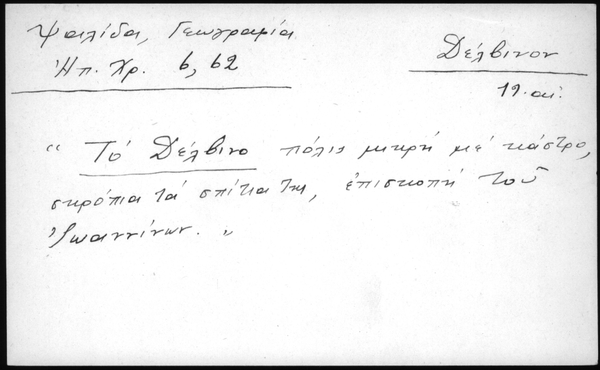 Ψαλίδα, Γεωγραφία
Ἠπ. Χρ. 6, 62
Δέλβινον
19. αἰ.
"Τό Δέλβινο πόλις μικρή μέ κάστρο,
σκρόπια τά σπίτια της, ἐπισκοπή τοῦ
Ἰωαννίνων."